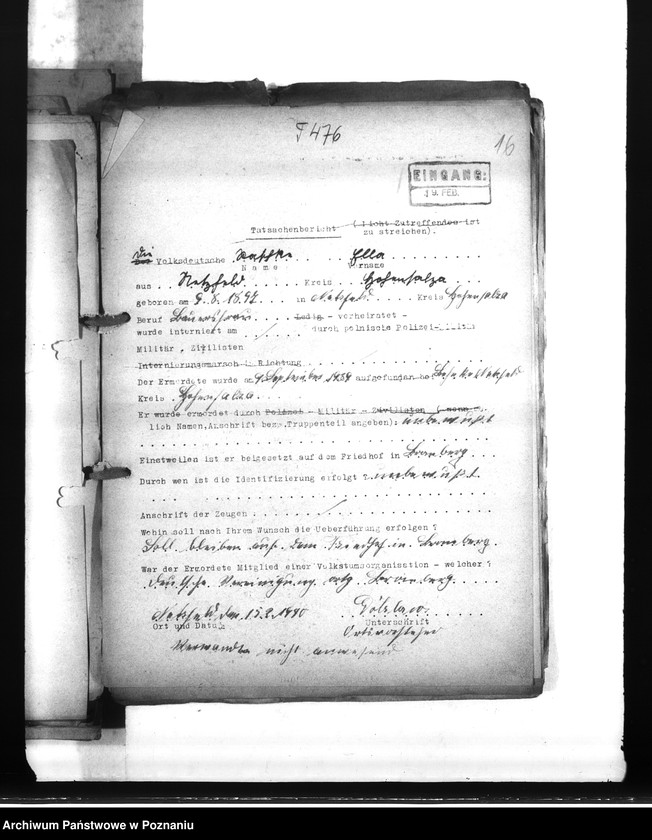 F 476
16
EINGANG:
19. FEB.
Tatsachenbericht (Nicht Zutreffendes ist
zu streichen).
Die Volksdeutsche Rathke Ella
Name Vorname
aus Netzfeld Kreis Hohensalza
geboren am 9.8.1892 in Netzfeld Kreis Hohensalza
Beruf Bäuersfrau Ledig - verheiratet -
wurde interniert am durch polnische Polizei-Militär
Militär, Zivilisten
Internierungsmarsch in Richtung
Der Ermordete wurde am 9. September 1939 aufgefunden bei
Kreis Hohensalza
Er wurde ermordet durch Polizei - Militär - Zivilisten (wenn
lich Namen, Anschrift bezw. Truppenteil angeben). unbewußt
Einstweilen ist er beigesetzt auf dem Friedhof in Bromberg
Durch wen ist die Identifizierung erfolgt ? unbewußt
Anschrift der Zeugen :
Wohin soll nach Ihrem Wunsch die Ueberführung erfolgen ?
Soll bleiben auf dem Friedhof in Bromberg.
War der Ermordete Mitglied einer Volkstumsorganisation - welcher ?
Deutsche Vereinigung Bromberg.
Netzfeld, den 15.2.1940
Ort und Datum Unterschrift
Ortsvorsteher
Verwandte nicht anwesend
Archiwum Państwowe w Poznaniu